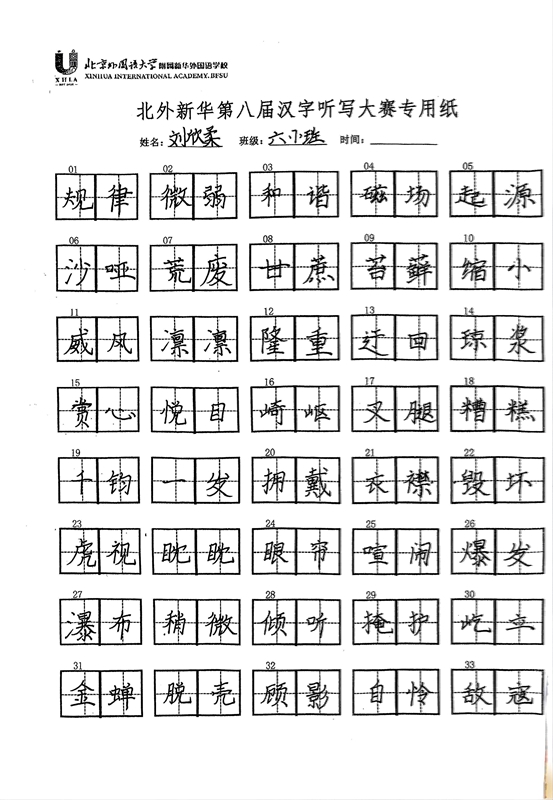 北京外国语大学附属新华外国语学校
XHLA XINHUA INTERNATIONAL ACADEMY, BFSU
北外新华第八届汉字听写大赛专用纸
姓名：刘欣柔 班级：六小班 时间：
01 02 03 04 05
规律 微弱 和谐 磁场 起源
06 07 08 09 10
沙哑 荒废 甘蔗 苔藓 缩小
11 12 13 14
威风 凛凛 隆重 迂回 琼浆
15 16 17 18
赏心 悦目 崎岖 叉腿 糟糕
19 20 21 22
千钧 一发 拥戴 衣襟 毁坏
23 24 25 26
虎视 眈眈 眼帘 喧闹 爆发
27 28 29 30
瀑布 稍微 倾听 掩护 屹立
31 32 33
金蝉 脱壳 顾影 自怜 敌寇